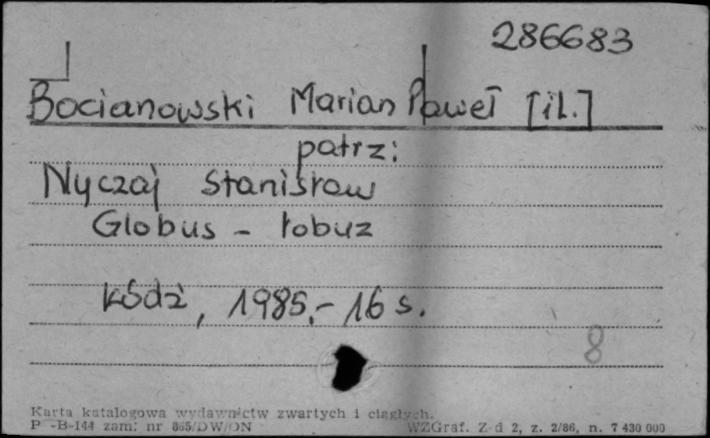 286683
Bocianowski Marian Paweł [il.]
patrz:
Nyczaj Stanisław
Globus - łobuz
Łódź, 1985.- 16 s.
8
Karta katalogowa wydawnictw zwartych i ciągłych.
P -B-144 zam. nr 865/DW/ON WZGraf. Z-d 2, z. 2/86, n. 7 430 000